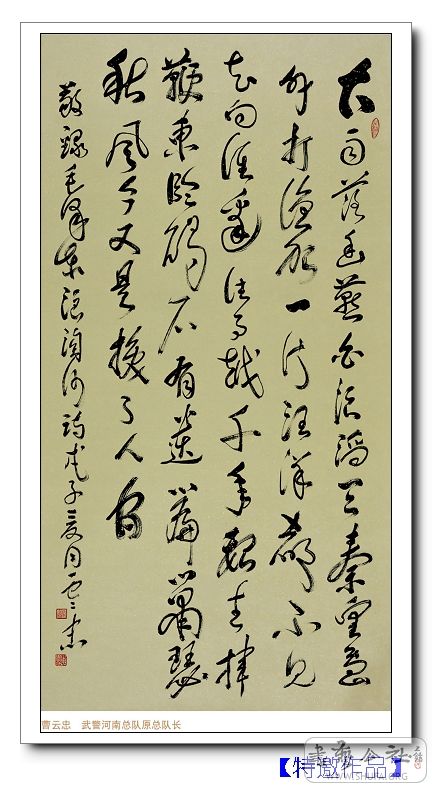 大雨落幽燕白浪滔天秦皇岛
外打渔船一片汪洋都不见
知向谁边往事越千年魏武挥
鞭东临碣石有遗篇萧瑟
秋风今又是换了人间
敬录毛泽东浪淘沙诗戊子夏月云忠
曹云忠 武警河南总队原总队长
【特邀作品】
WWW.SHUFA.ORG